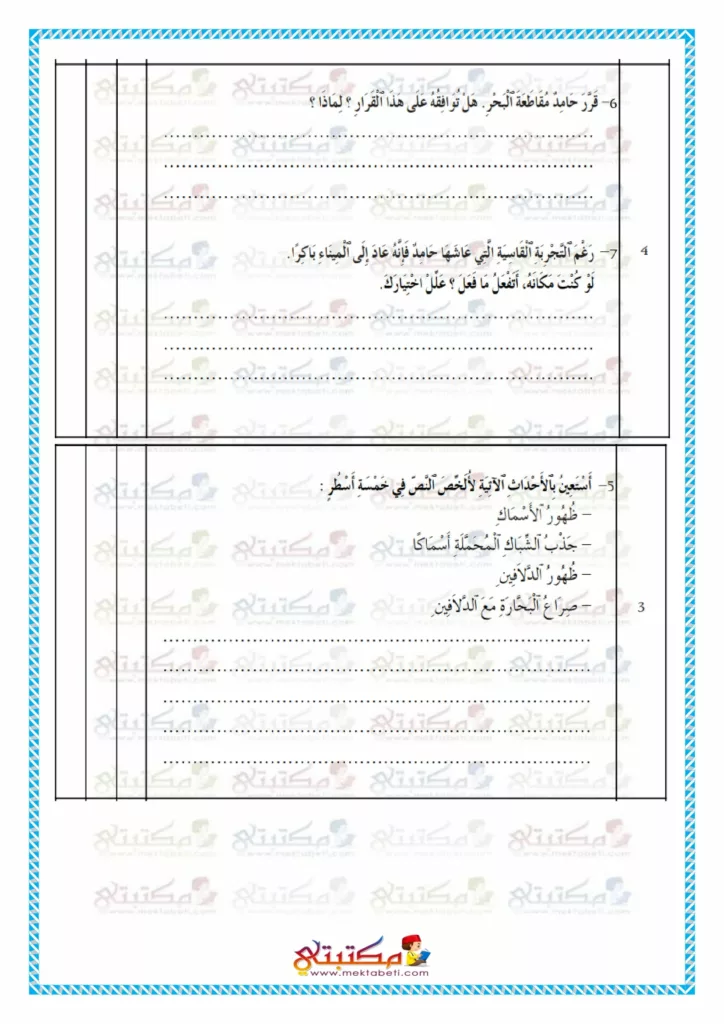 6- قَرَّرَ حَامِدٌ مُقَاطَعَةَ ٱلْبَحْرِ. هَلْ تُوَافِقُهُ عَلَى هَذَا ٱلْقَرَارِ ؟ لِمَاذَا ؟
4
7- رَغْمَ ٱلتَّجْرِبَةِ ٱلْقَاسِيَةِ ٱلَّتِي عَاشَهَا حَامِدٌ فَإِنَّهُ عَادَ إِلَى ٱلْمِينَاءِ بَاكِرًا.
لَوْ كُنْتَ مَكَانَهُ، أَتَفْعَلُ مَا فَعَلَ ؟ عَلِّلْ اخْتِيَارَكَ.
5- أَسْتَعِينُ بِٱلأَحْدَاثِ ٱلآتِيَةِ لأُلَخِّصَ ٱلنَّصَّ فِي خَمْسَةِ أَسْطُرٍ :
- ظُهُورُ ٱلأَسْمَاكِ
- جَذْبُ ٱلشِّبَاكِ ٱلْمُحَمَّلَةِ أَسْمَاكًا
- ظُهُورُ ٱلدَّلاَفِينِ
3
- صِرَاعُ ٱلْبَحَّارَةِ مَعَ ٱلدَّلاَفِينِ
مكتبتي
www.mektabeti.com